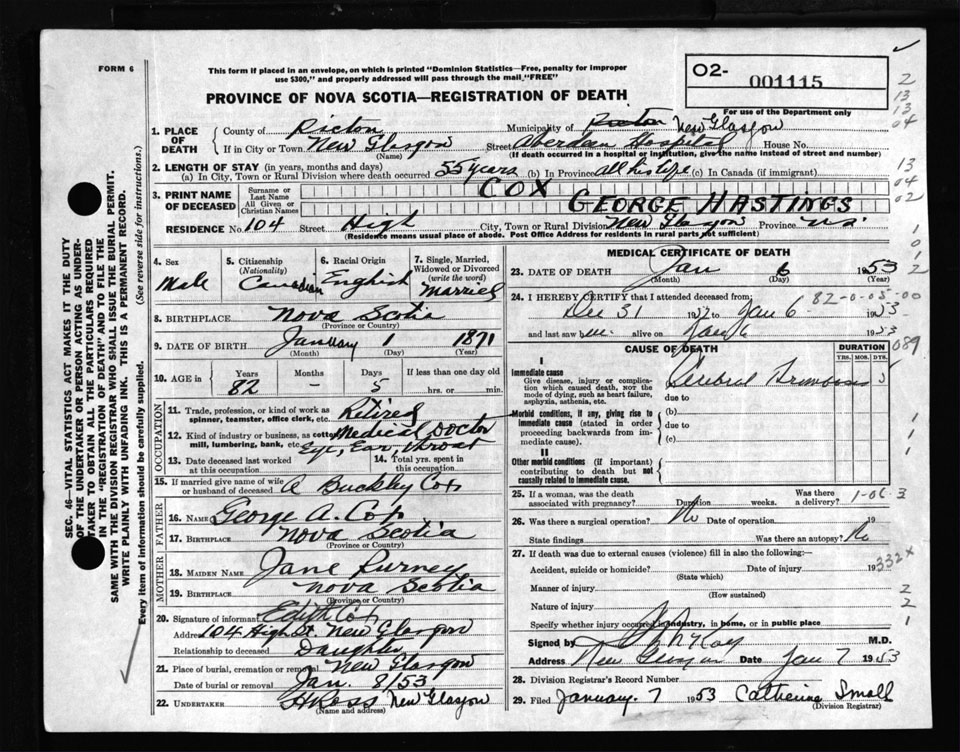 FORM 6
This form if placed in an envelope, on which is printed "Dominion Statistics—Free, penalty for improper
use $300," and properly addressed will pass through the mail "FREE"
O2- 001115
PROVINCE OF NOVA SCOTIA—REGISTRATION OF DEATH
For use of the Department only
1. PLACE OF DEATH
County of Pictou Municipality of Pictou New Glasgow
If in City or Town New Glasgow (Name) Street Aberdeen Hospital House No.
(If death occurred in a hospital or institution, give the name instead of street and number)
2. LENGTH OF STAY (in years, months and days)
(a) In City, Town or Rural Division where death occurred 55 years (b) In Province all his life (c) In Canada (if immigrant)
3. PRINT NAME OF DECEASED
Surname or Last Name COX
All Given or Christian Names GEORGE HASTINGS
RESIDENCE No. 104 Street High City, Town or Rural Division New Glasgow Province N.S.
(Residence means usual place of abode. Post Office Address for residents in rural parts not sufficient)
4. Sex Male
5. Citizenship (Nationality) Canadian
6. Racial Origin English
7. Single, Married, Widowed or Divorced (write the word) Married
8. BIRTHPLACE Nova Scotia
(Province or Country)
9. DATE OF BIRTH January 1 1871
(Month) (Day) (Year)
10. AGE in Years 82 Months – Days 5 If less than one day old hrs. or min.
OCCUPATION
11. Trade, profession, or kind of work as spinner, teamster, office clerk, etc. Retired
12. Kind of industry or business, as cotton mill, lumbering, bank, etc. Medical Doctor
Eye, Ear, Throat
13. Date deceased last worked at this occupation
14. Total yrs. spent in this occupation
15. If married give name of wife or husband of deceased A Cox
FATHER
16. NAME George A. Cox
17. BIRTHPLACE Nova Scotia
(Province or Country)
MOTHER
18. MAIDEN NAME Jane
19. BIRTHPLACE Nova Scotia
(Province or Country)
20. Signature of informant Edith Cox
Address 104 High St. New Glasgow
Relationship to deceased Daughter
21. Place of burial, cremation or removal New Glasgow
Date of burial or removal Jan. 8/53
22. UNDERTAKER New Glasgow
(Name and address)
MEDICAL CERTIFICATE OF DEATH
23. DATE OF DEATH Jan 6 1953
(Month) (Day) (Year)
82-0-05-00
24. I HEREBY CERTIFY that I attended deceased from:
Dec 31 1952 to Jan 6 1953
and last saw him alive on Jan 6 1953
089
CAUSE OF DEATH
DURATION
YRS. MOS. DYS.
I
Immediate cause
Give disease, injury or complication which caused death, NOT the mode of dying, such as heart failure, asphyxia, asthenia, etc.
(a) Cerebral Thrombosis 5
due to
Morbid conditions, if any, giving rise to immediate cause (stated in order proceeding backwards from immediate cause).
(b)
due to
(c)
II
Other morbid conditions (if important) contributing to death but not causally related to immediate cause.
25. If a woman, was the death associated with pregnancy? Duration weeks. Was there a delivery?
1-06 3
26. Was there a surgical operation? No Date of operation 19
State findings Was there an autopsy? No
27. If death was due to external causes (violence) fill in also the following:—
332 x
Accident, suicide or homicide? Date of injury 19
(State which)
Manner of injury
(How sustained)
Nature of injury
Specify whether injury occurred in industry, in home, or in public place
Signed by M.D.
Address New Glasgow Date Jan 7 1953
28. Division Registrar's Record Number
29. Filed January. 7 1953 Catherine Small
(Division Registrar)
SEC. 46—VITAL STATISTICS ACT MAKES IT THE DUTY
OF THE UNDERTAKER OR PERSON ACTING AS UNDER-
TAKER TO OBTAIN ALL THE PARTICULARS REQUIRED
IN THE "REGISTRATION OF DEATH" AND TO FILE THE
SAME WITH THE DIVISION REGISTRAR WHO SHALL ISSUE THE BURIAL PERMIT.
WRITE PLAINLY WITH UNFADING INK. THIS IS A PERMANENT RECORD.
Every item of information should be carefully supplied. (See reverse side for instructions.)
2
13
13
04
13
04
02
1
0
1
2
1
1
1
2
2
1